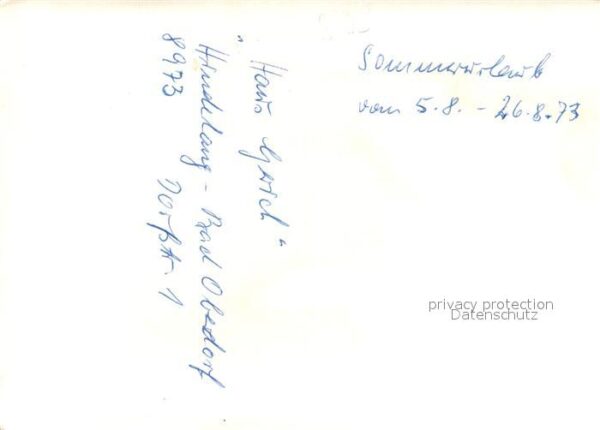 Sommerurlaub
vom 5.8. - 26.8.73
"Haus Gerich"
Hindelang - Bad Oberdorf
8973 Dorfstr. 1
privacy protection
Datenschutz